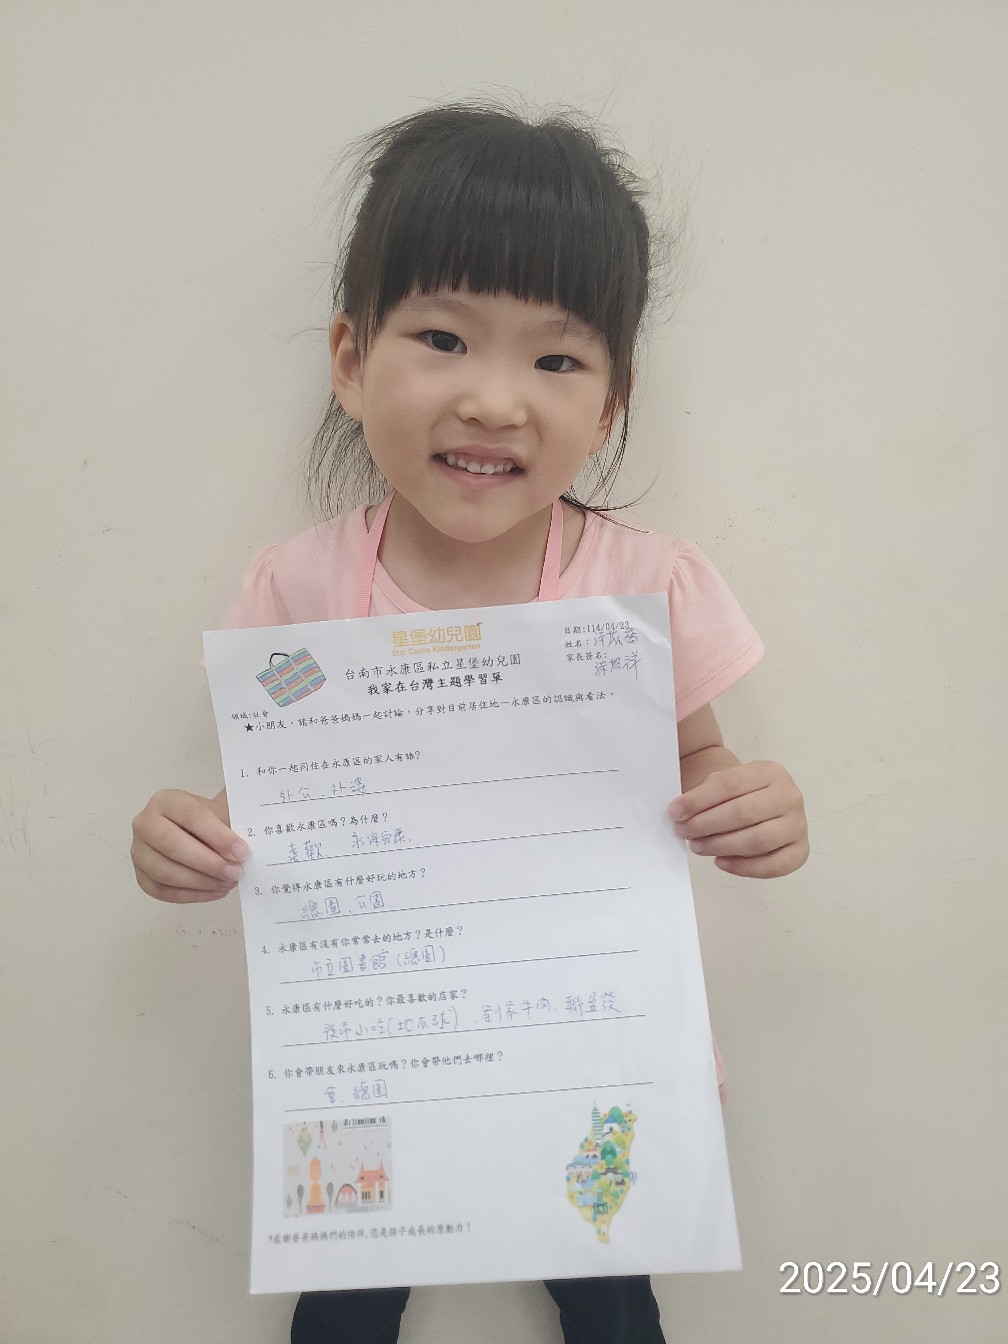 星堡幼兒園
Star Castle Kindergarten
日期:114/04/23
姓名:
家長簽名:
台南市永康區私立星堡幼兒園
我家在台灣主題學習單
領域:社會
★小朋友，請和爸爸媽媽一起討論，分享對目前居住地—永康區的認識與看法。
1. 和你一起同住在永康區的家人有誰?
外公、外婆
2. 你喜歡永康區嗎?為什麼?
喜歡 永保安康.
3. 你覺得永康區有什麼好玩的地方?
總圖、公園
4. 永康區有沒有你常常去的地方?是什麼?
市立圖書館(總圖)
5. 永康區有什麼好吃的?你最喜歡的店家?
夜市小吃(地瓜球)、劉家牛肉、
6. 你會帶朋友來永康區玩嗎?你會帶他們去哪裡?
會、總圖
*感謝爸爸媽媽們的陪伴,您是孩子成長的原動力!
2025/04/23